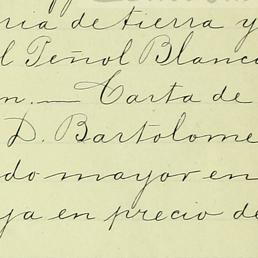 ria de tierra y
l Peñol Blanc
n. — Carta de
D. Bartolome
do mayor en
ja en precio de